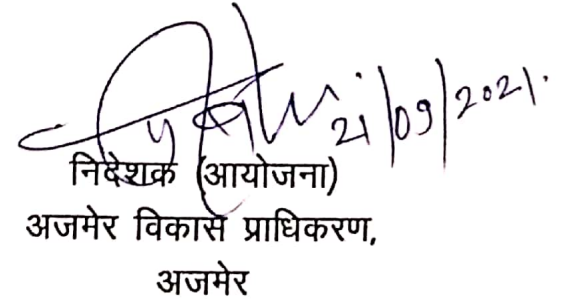 21/09/2021.
निदेशक (आयोजना)
अजमेर विकास प्राधिकरण,
अजमेर